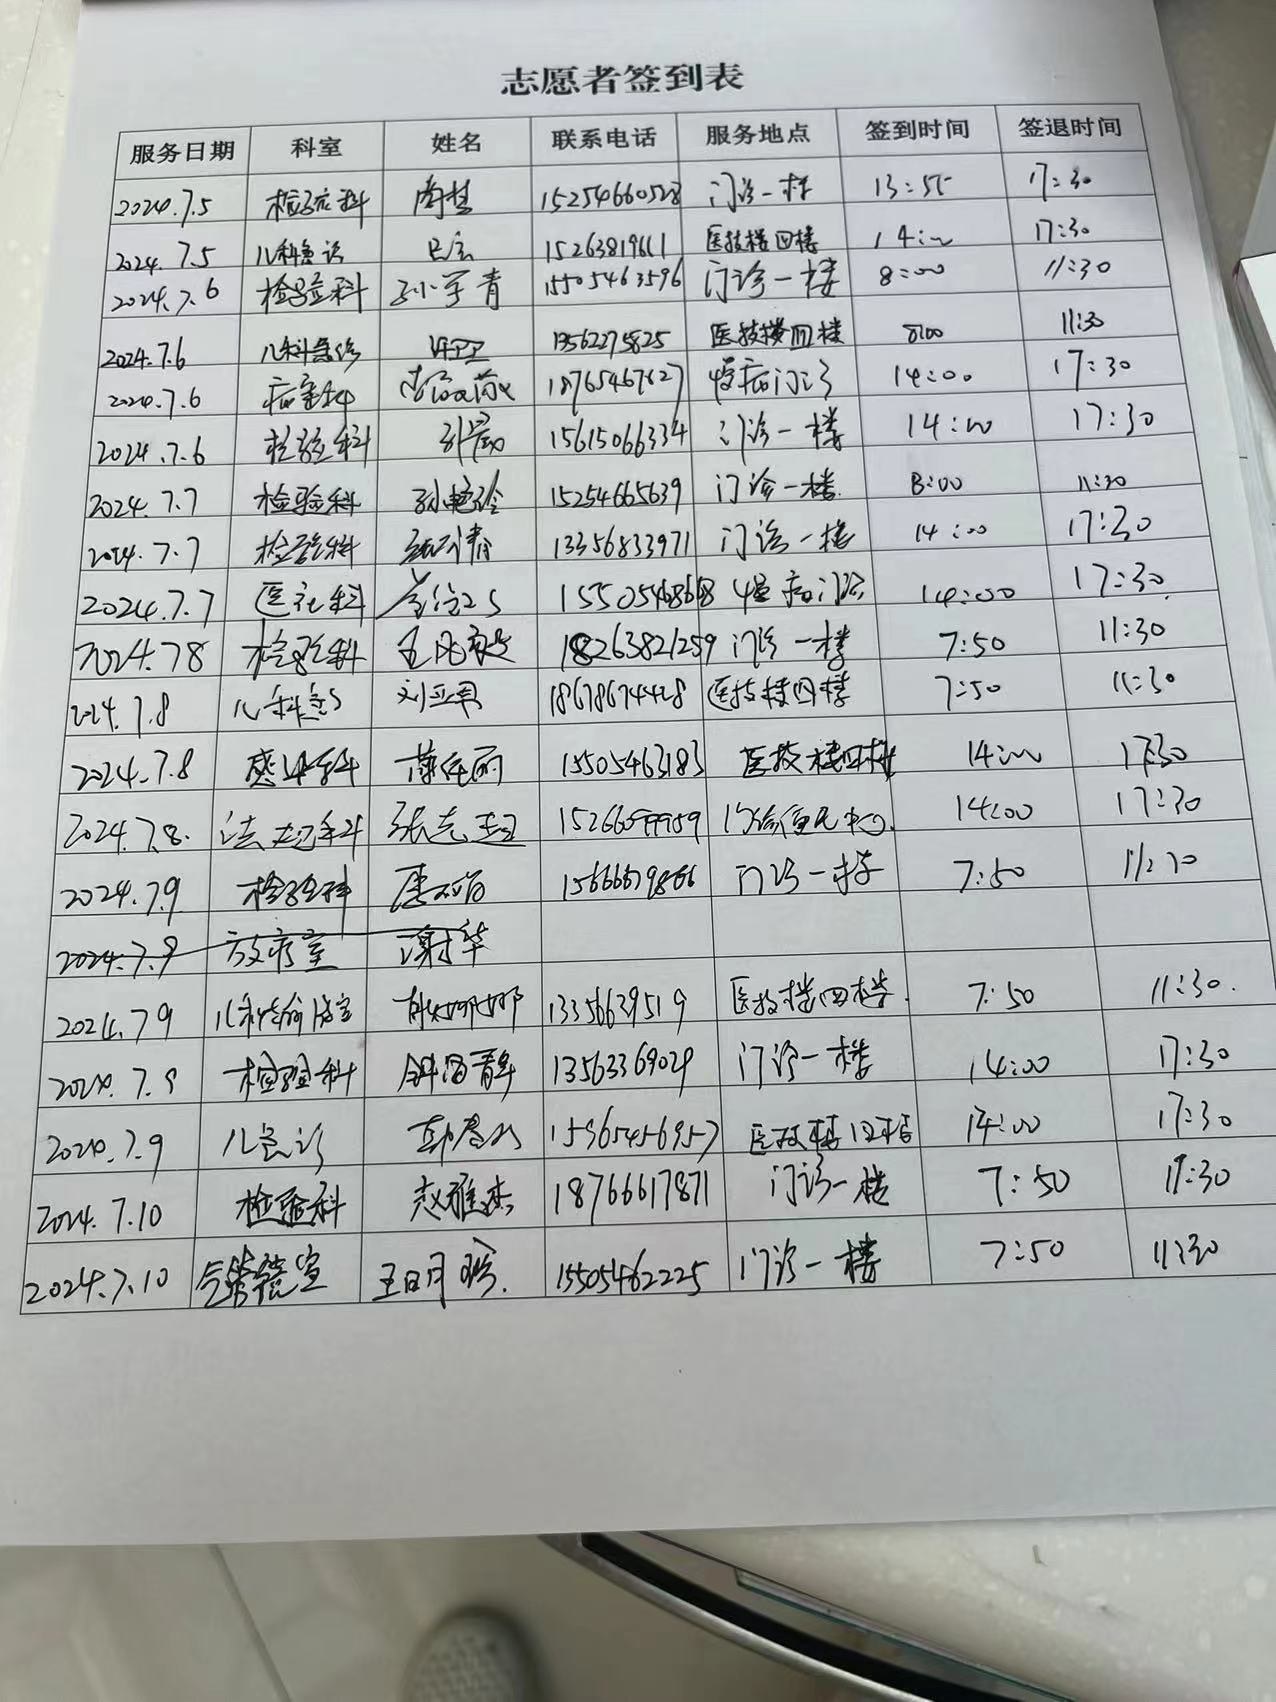 志愿者签到表
服务日期 科室 姓名 联系电话 服务地点 签到时间 签退时间
2024.7.5 检验科 15254660528 门诊一楼 13:55 17:30
2024.7.5 儿科急诊 15263819611 医技楼四楼 14:00 17:30
2024.7.6 检验科 孙学青 15505463596 门诊一楼 8:00 11:30
2024.7.6 儿科急诊 13562275825 医技楼四楼 8:00 11:30
2024.7.6 病案科 18765467627 慢病门诊 14:00 17:30
2024.7.6 检验科 15615066334 门诊一楼 14:00 17:30
2024.7.7 检验科 15254665639 门诊一楼 8:00 11:30
2024.7.7 检验科 13356833971 门诊一楼 14:00 17:30
2024.7.7 慢病门诊 14:00 17:30
2024.7.8 检验科 18263821259 门诊一楼 7:50 11:30
2024.7.8 刘亚男 18678674428 医技楼四楼 7:50 11:30
2024.7.8 感染科 15505463183 医技楼四楼 14:00 17:30
2024.7.8. 张志超 14:00 17:30
2024.7.9 检验科 门诊一楼 7:50
2024.7.9 放疗室 谢华
2024.7.9 13356639519 医技楼四楼 7:50 11:30.
2024.7.9 检验科 13563369029 门诊一楼 14:00 17:30
2024.7.9 儿急诊 15965456957 医技楼四楼 14:00 17:30
2024.7.10 检验科 赵雅杰 18766617871 门诊一楼 7:50 11:30
2024.7.10 15505462225 门诊一楼 7:50 11:30